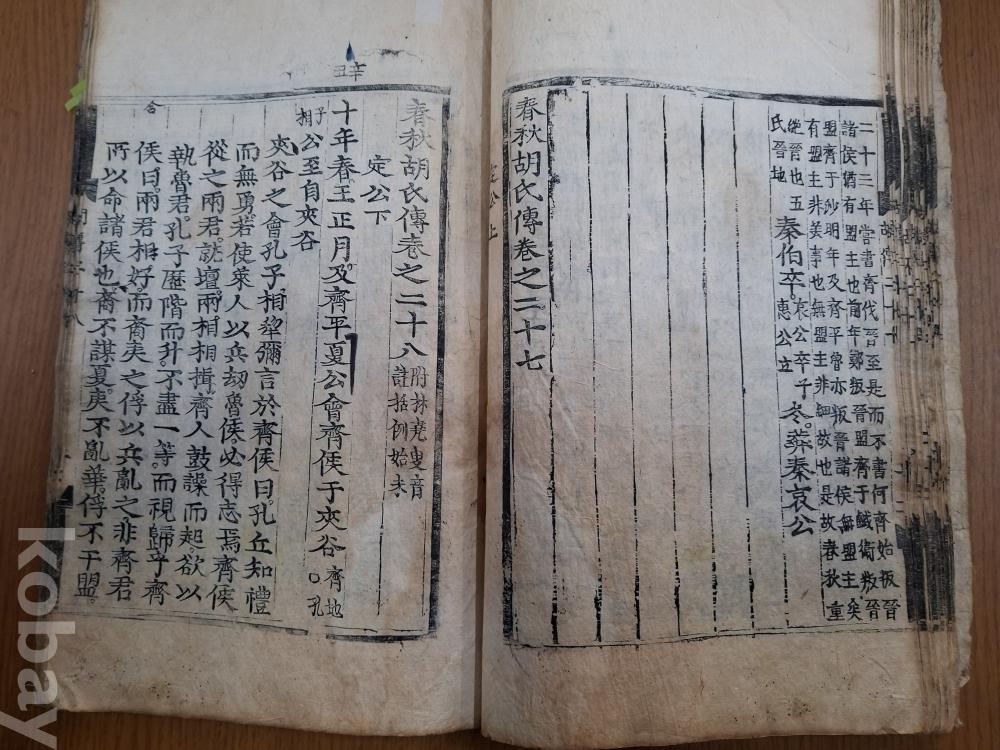 二十三年嘗書齊伐晉至是而不書何齊始叛晉
諸侯猶有盟主也前年鄭叛晉盟齊于鹹衛叛晉
盟齊于沙明年及齊平魯亦叛晉諸侯無盟主矣
有盟主非美事也無盟主非細故也是故春秋重
絶晉也五
氏晉地
秦伯卒
哀公卒子
惠公立
冬葬秦哀公
春秋胡氏傳卷之二十七
定公上
辛丑
春秋胡氏傳卷之二十八
附林堯叟音
註括例始末
定公下
十年春王正月及齊平夏公會齊侯于夾谷
齊地
○孔
子
相
公至自夾谷
夾谷之會孔子相犂彌言於齊侯曰孔丘知禮
而無勇若使萊人以兵劫魯侯必得志焉齊侯
從之兩君就壇兩相相揖齊人鼓譟而起欲以
執魯君孔子歷階而升不盡一等而視歸乎齊
侯曰兩君相好而裔夷之俘以兵亂之非齊君
所以命諸侯也裔不謀夏夷不亂華俘不干盟
合
kobay